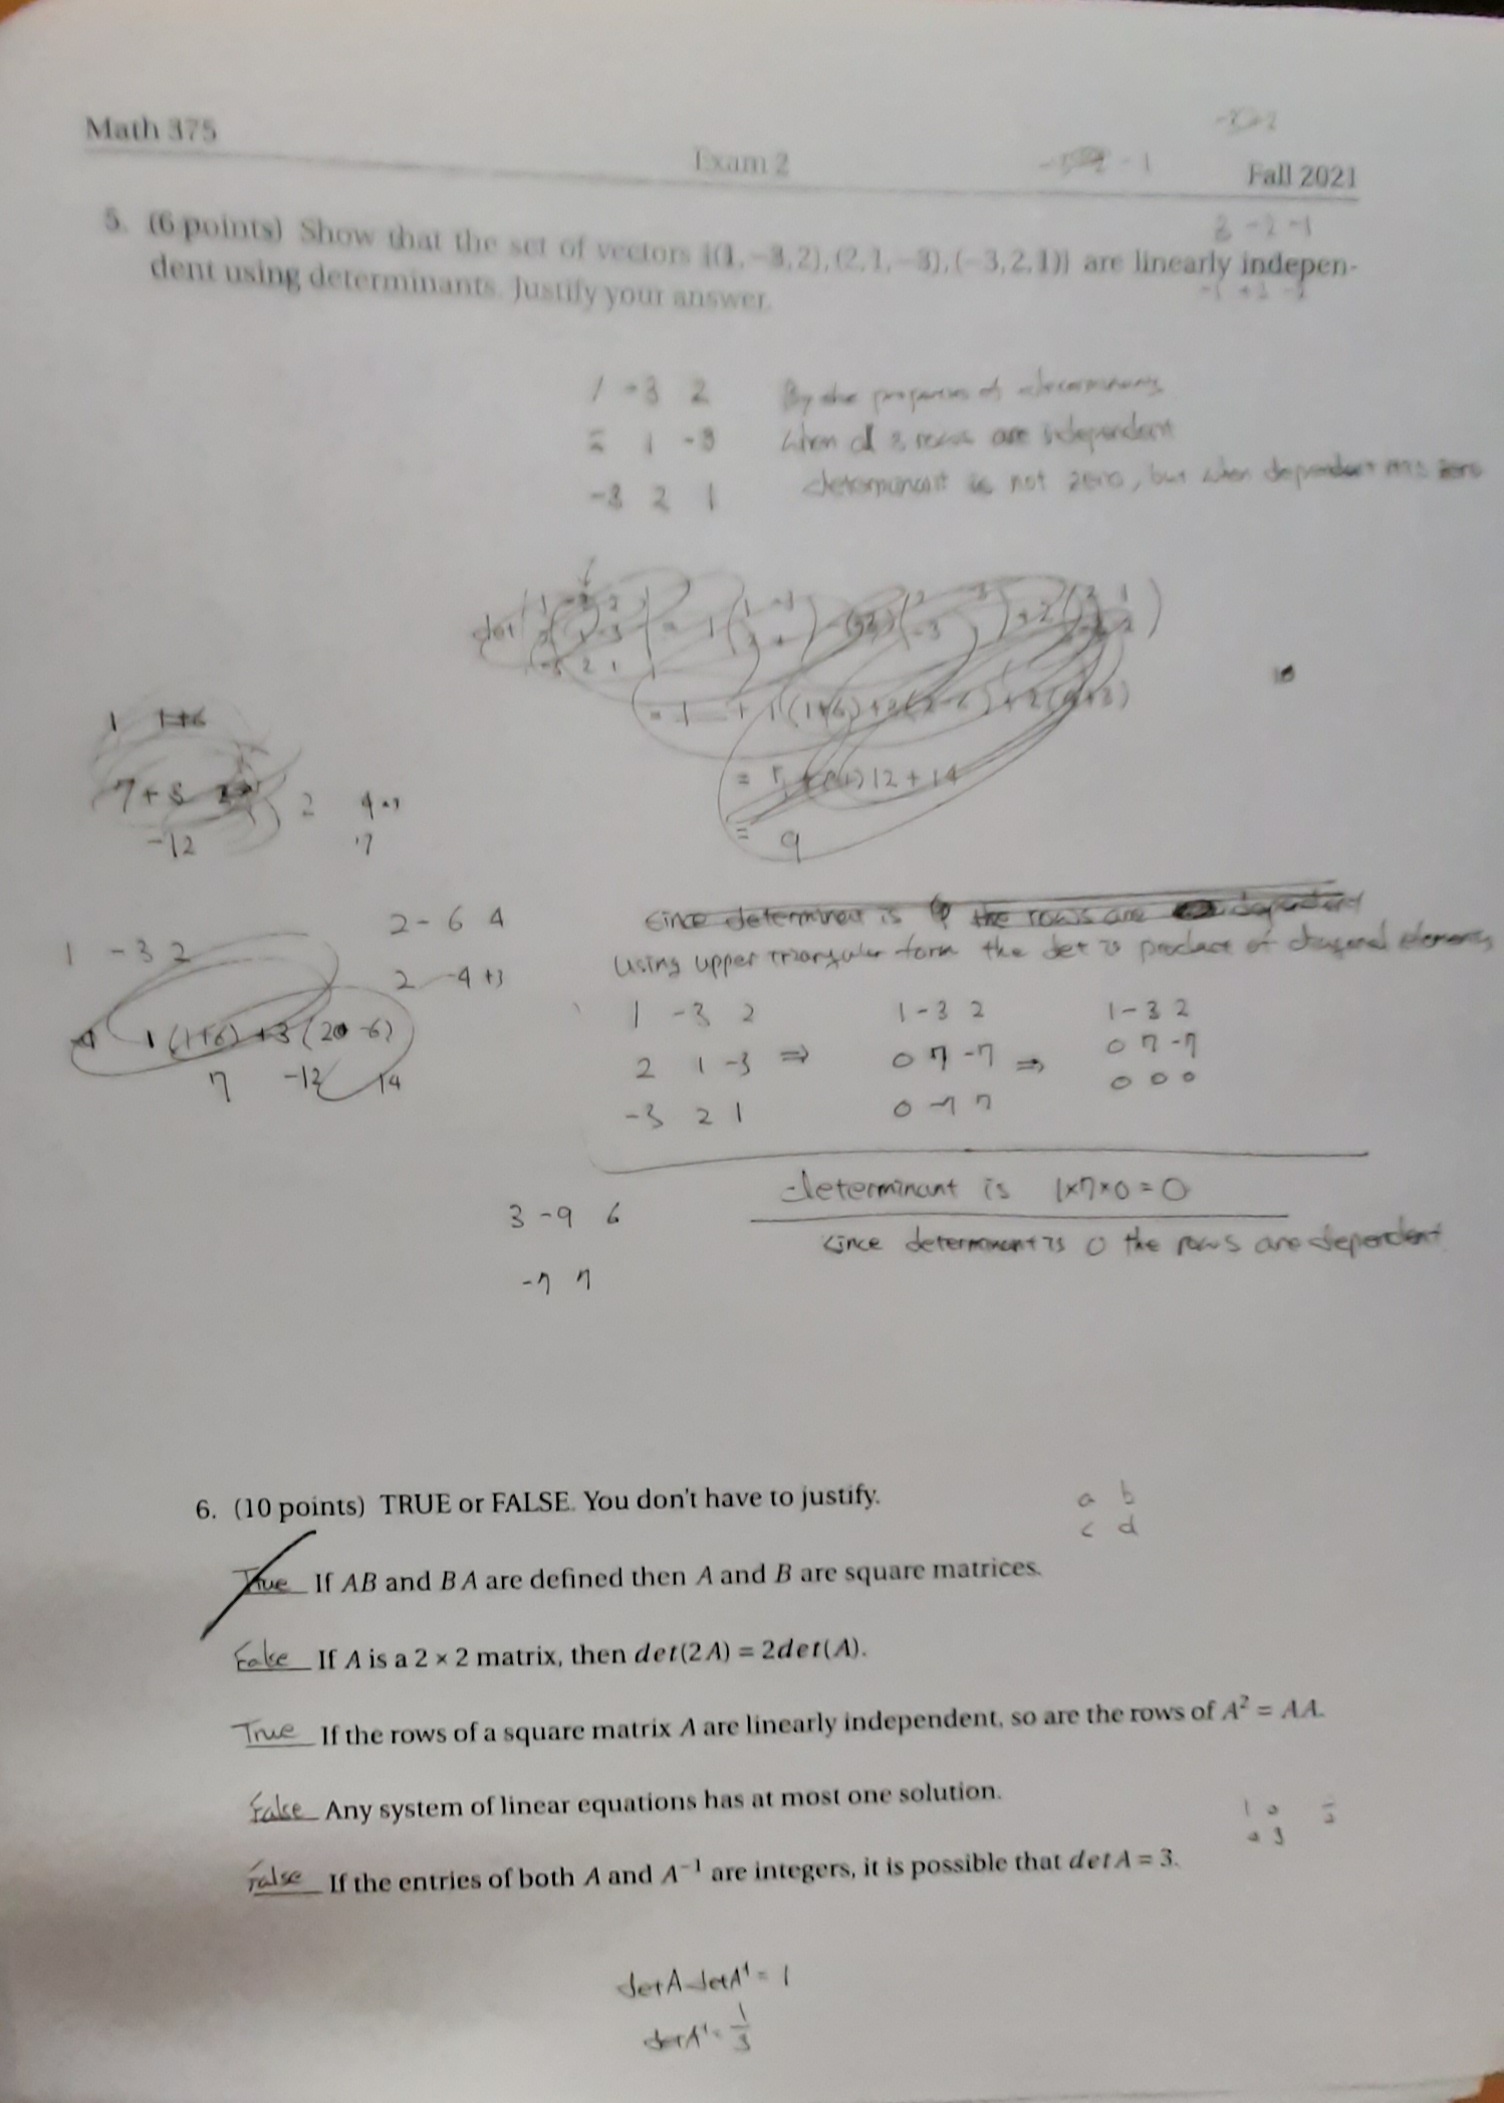 Math 375
Exam 2
- 1
Fall 2021
3 -2 -1
5. (6 points) Show that the set of vectors {(1,-3,2),(2,1,-3),(-3,2,1)} are linearly indepen-
dent using determinants. Justify your answer.
1 -3 2 By the properties of determinants
2 1 -3 when all 3 rows are independent
-3 2 1 determinant is not zero, but when dependent it is zero
det
1 1+6
= 1 + 1(1+6)+3(2-6)+2(4+3)
7+3
2 4+3
-12
7
12+14
= 9
2 -6 4
since determinant is the rows are dependent
1 -3 2
using upper triangular form the det is product of diagonal elements
2 -4+3
1 -3 2 1 -3 2 1 -3 2
1(1+6)+3(2-6)
2 1 -3 ⇒ 0 7 -7 ⇒ 0 7 -7
7 -12 14
-3 2 1 0 -7 7 0 0 0
determinant is 1×7×0=0
3 -9 6
since determinant is 0 the rows are dependent
-7 7
6. (10 points) TRUE or FALSE. You don't have to justify.
a b
c d
True If AB and BA are defined then A and B are square matrices.
False If A is a 2 × 2 matrix, then det(2A) = 2det(A).
True If the rows of a square matrix A are linearly independent, so are the rows of A² = AA.
False Any system of linear equations has at most one solution.
1 0
0 3
False If the entries of both A and A⁻¹ are integers, it is possible that detA = 3.
detA detA⁻¹ = 1
detA⁻¹ = 1/3